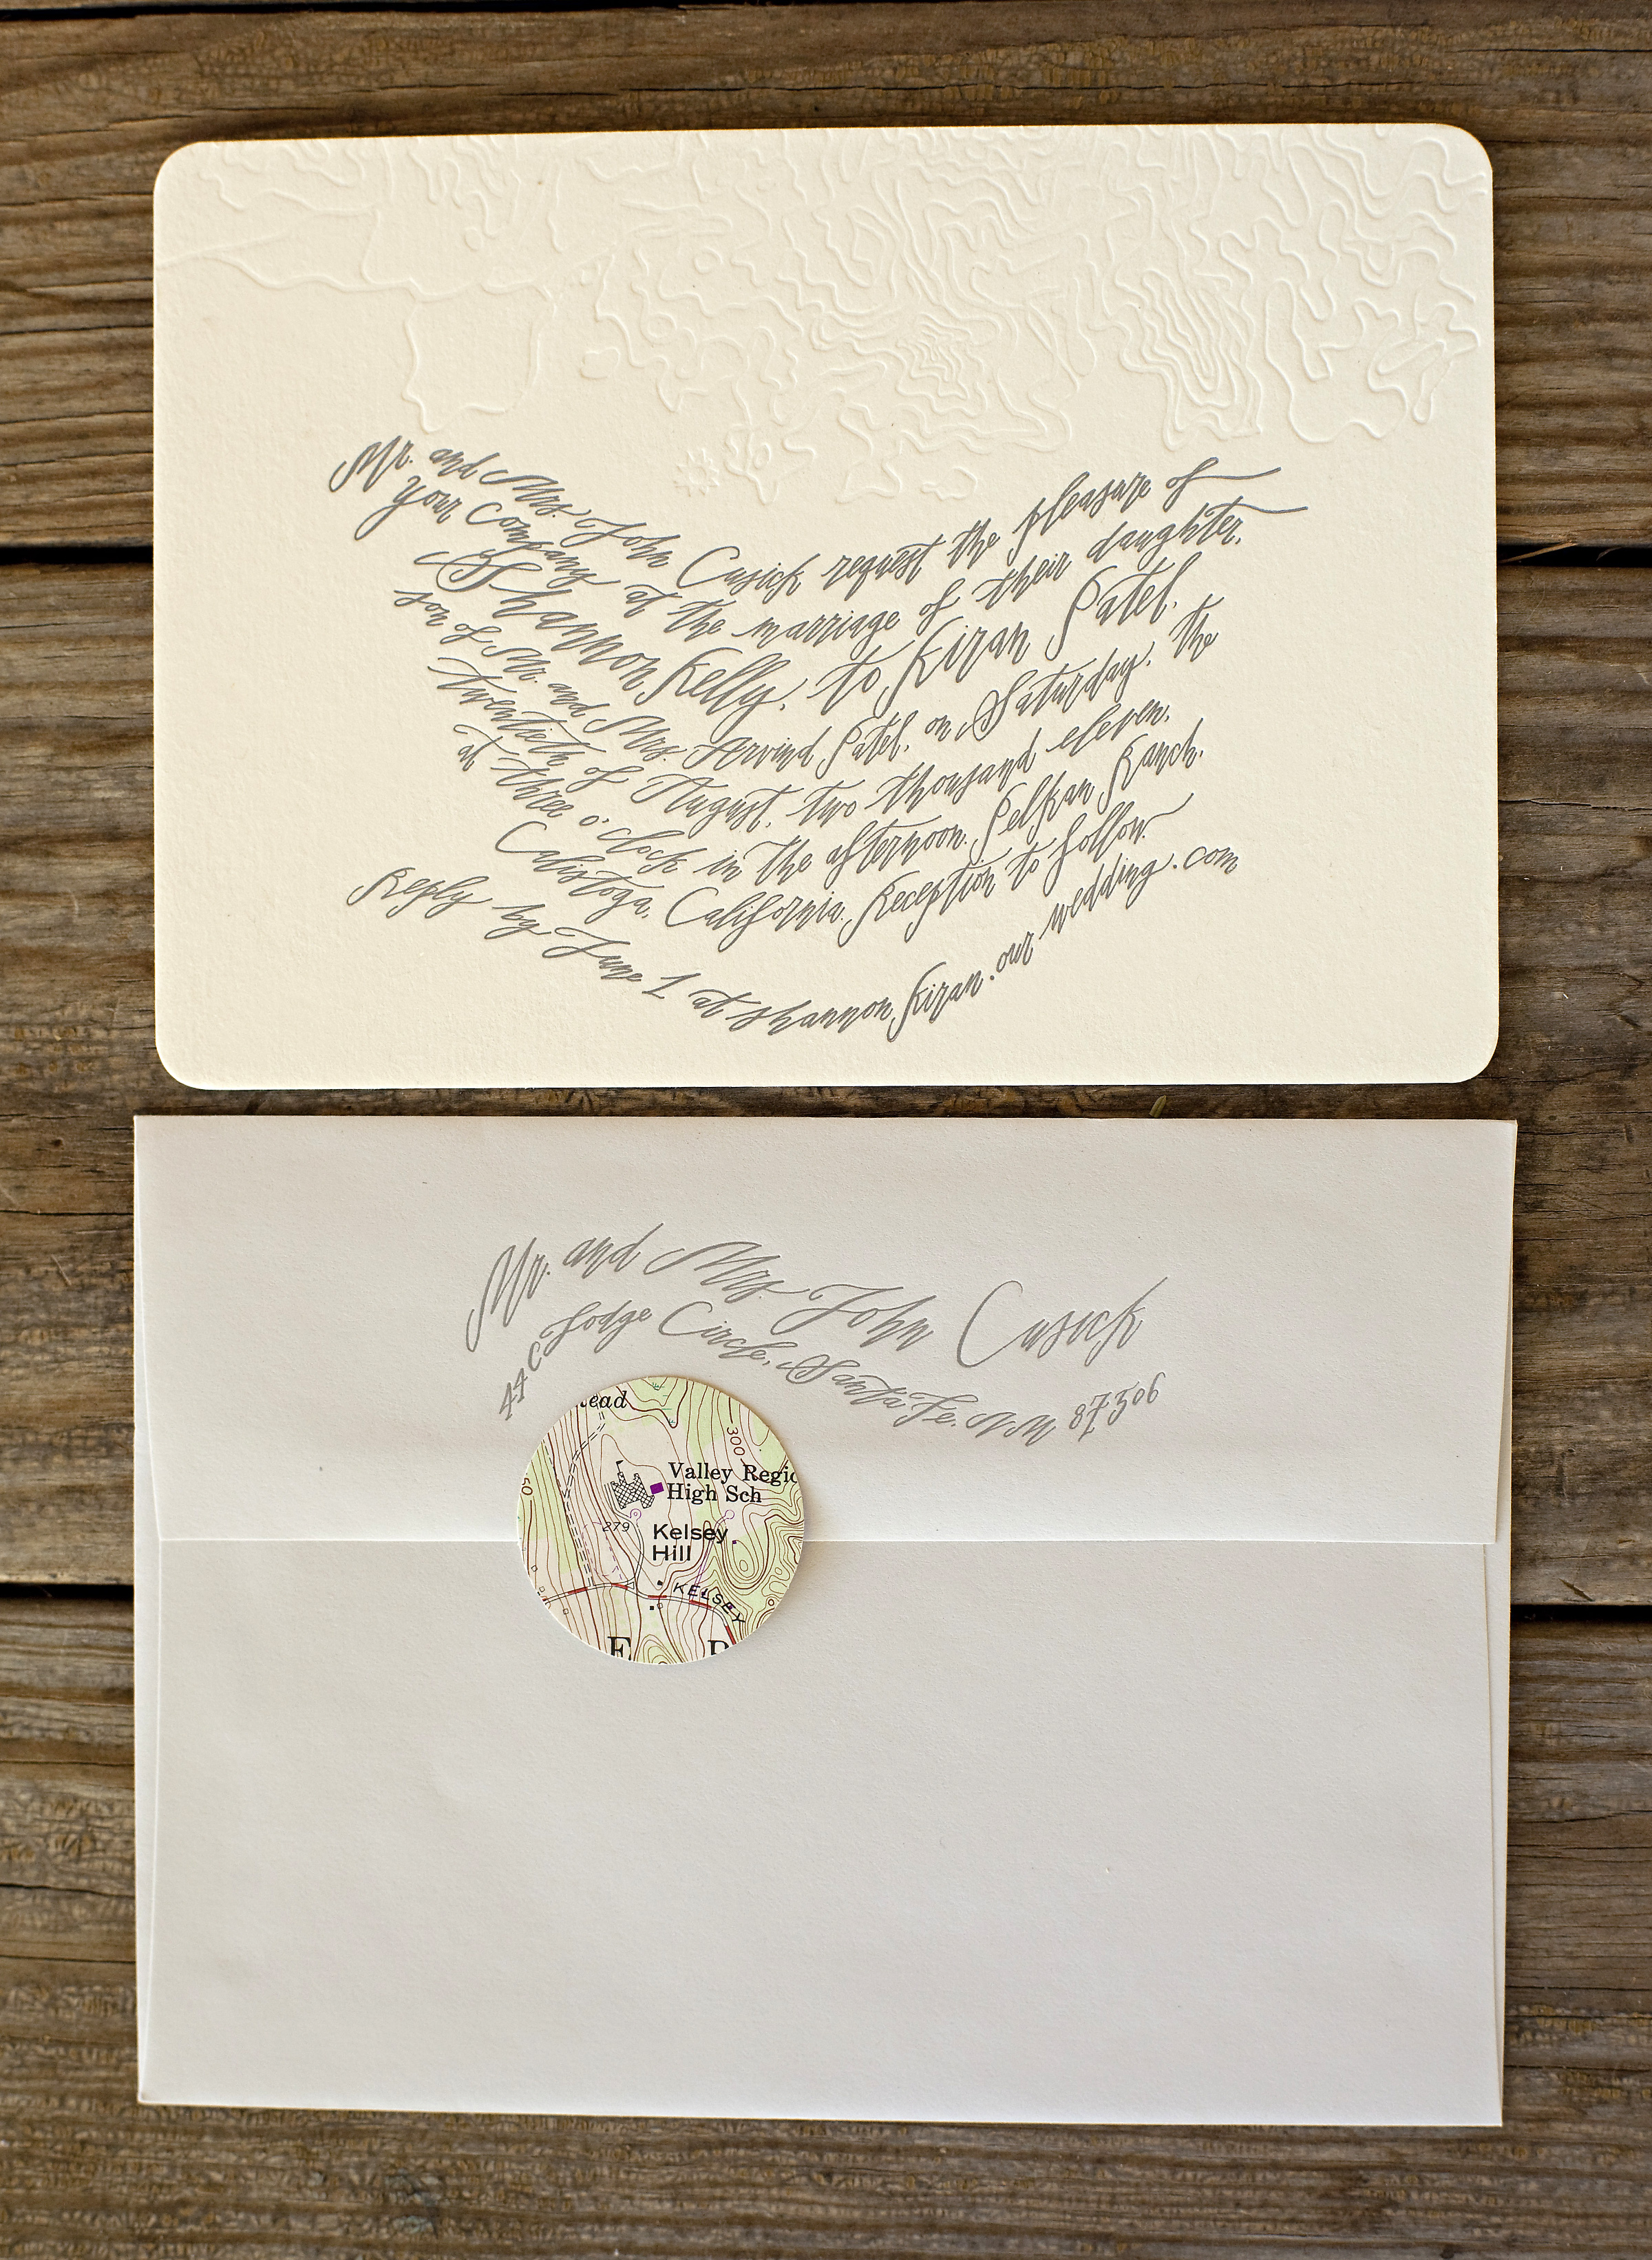 Mr. and Mrs. John Cusick request the pleasure of
your company at the marriage of their daughter,
Shannon Kelly, to Kiran Patel,
son of Mr. and Mrs. Arvind Patel, on Saturday, the
twentieth of August, two thousand eleven,
at three o'clock in the afternoon. Pelkan Ranch,
Calistoga, California. Reception to follow.
Reply by June 1 at shannonkiran.ourwedding.com
Mr. and Mrs. John Cusick
44C Lodge Circle, Santa Fe, NM 87506
ead
300
50
Valley Regio
High Sch
279
Kelsey
Hill
KELSEY
E